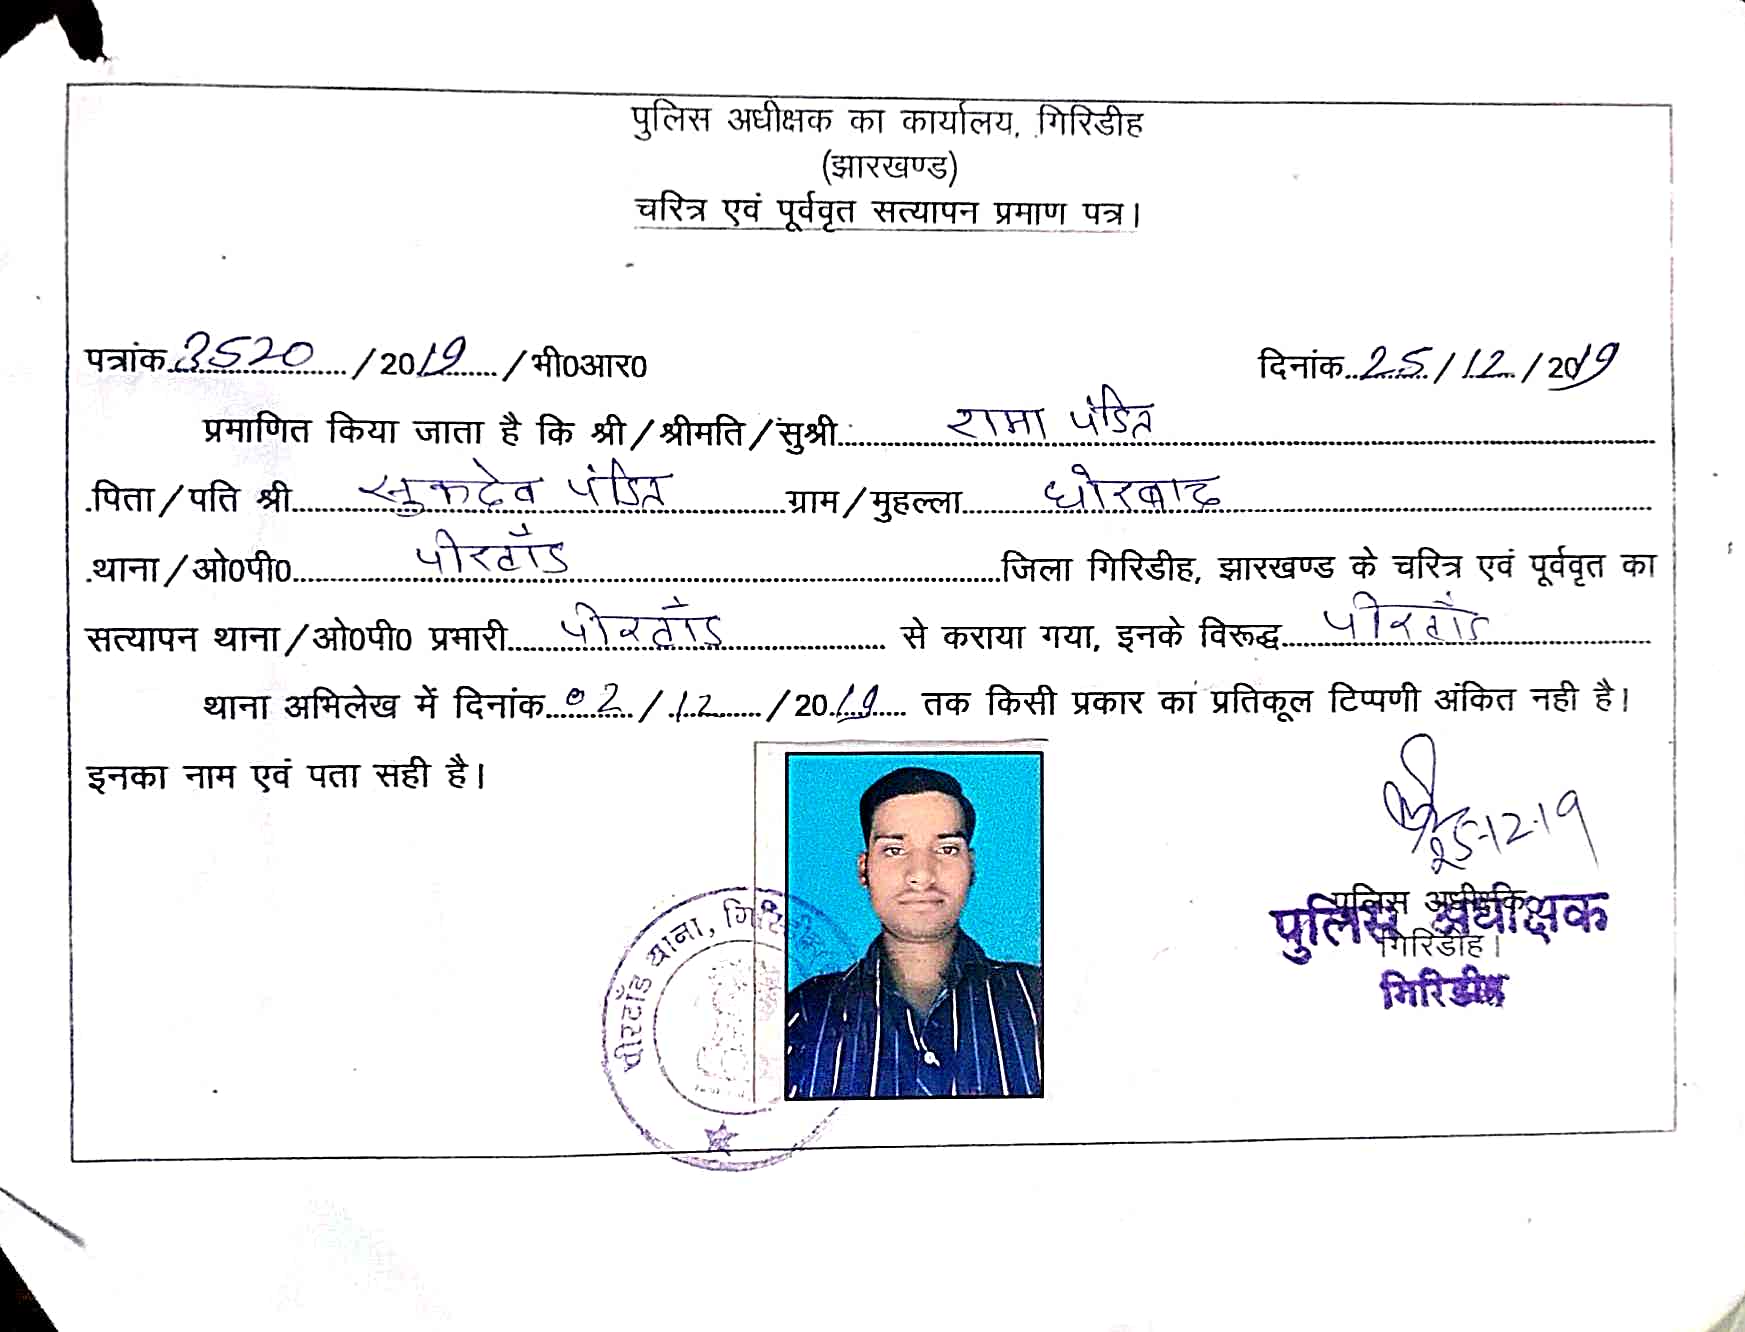 पुलिस अधीक्षक का कार्यालय, गिरिडीह
(झारखण्ड)
चरित्र एवं पूर्ववृत सत्यापन प्रमाण पत्र।
पत्रांक 3520 / 2019 / भी0आर0 दिनांक 25 / 12 / 2019
प्रमाणित किया जाता है कि श्री / श्रीमति / सुश्री रामा पंडित
पिता / पति श्री सुकदेव पंडित ग्राम / मुहल्ला धोरबाद
थाना / ओ0पी0 पीरटाँड जिला गिरिडीह, झारखण्ड के चरित्र एवं पूर्ववृत का
सत्यापन थाना / ओ0पी0 प्रमारी पीरटाँड से कराया गया, इनके विरूद्ध पीरटाँड
थाना अमिलेख में दिनांक 02 / 12 / 2019 तक किसी प्रकार का प्रतिकूल टिप्पणी अंकित नही है।
इनका नाम एवं पता सही है।
25-12-19
पुलिस अधीक्षक
गिरिडीह।
पुलिस अधीक्षक
गिरिडीह
पीरटाँड थाना, गिरिडीह